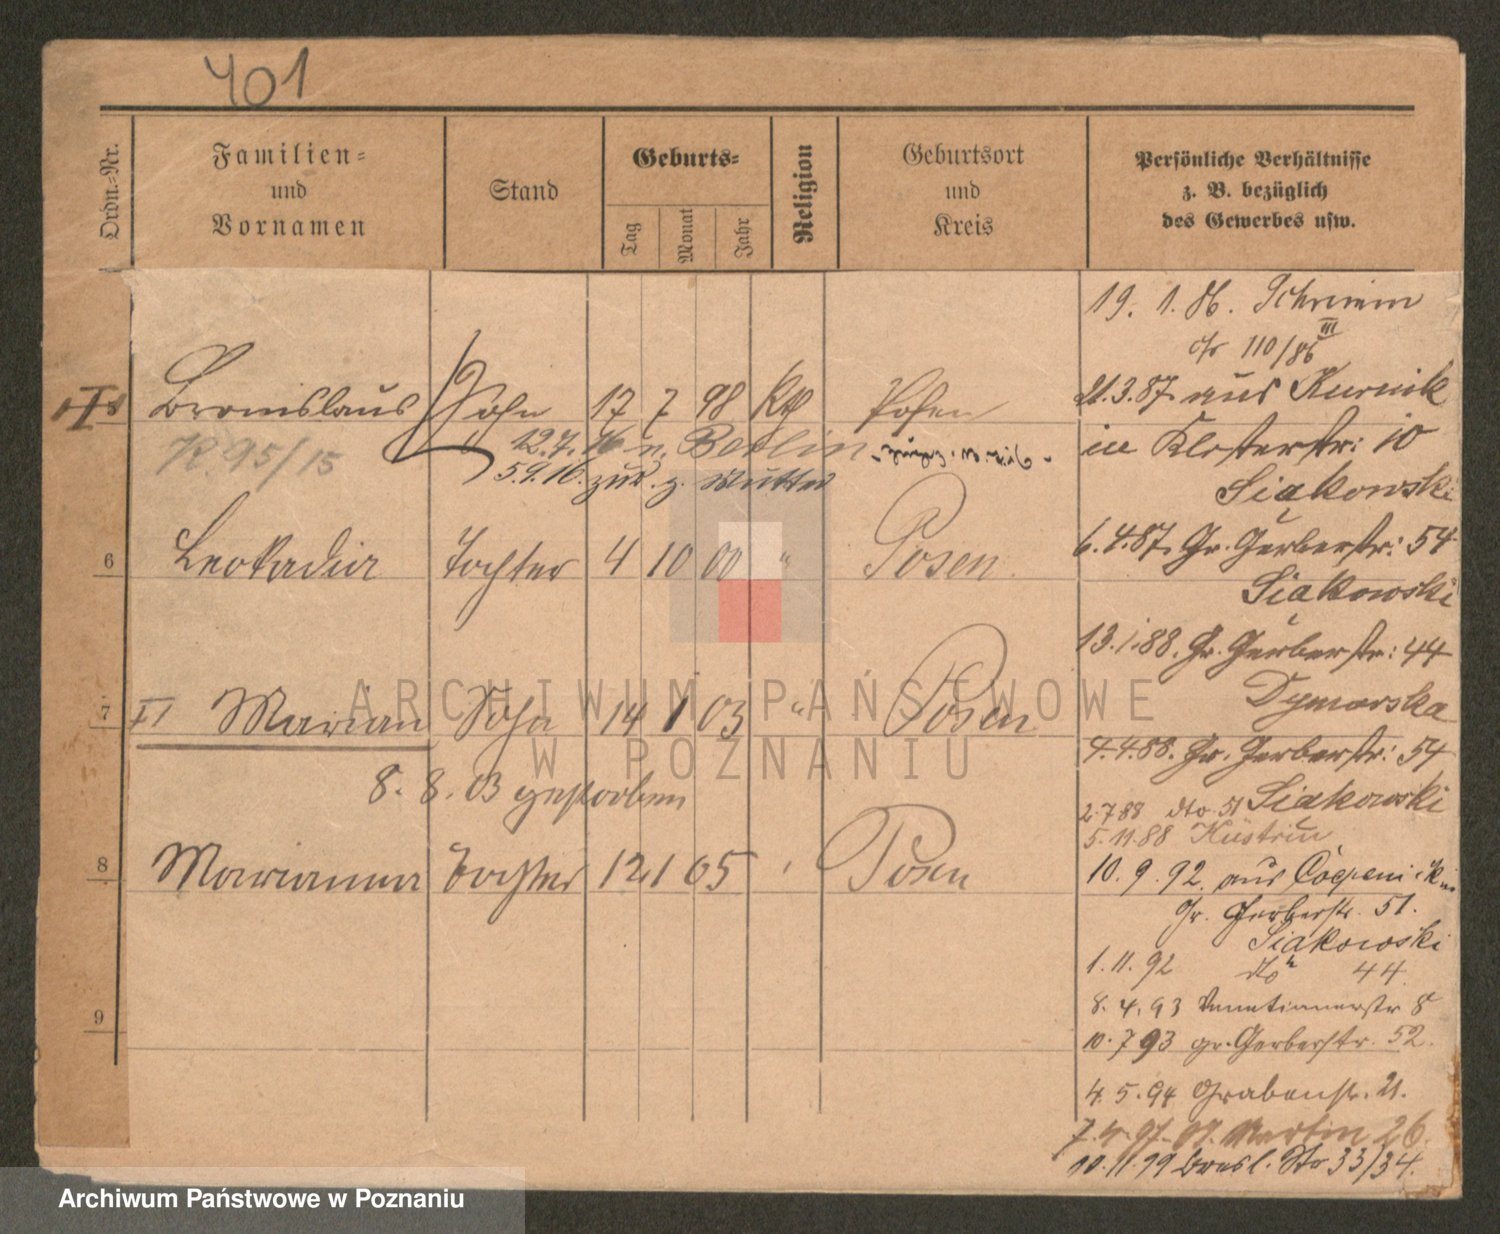 401
Ordn.-Nr.
Familien- und Vornamen
Stand
Geburts-
Tag
Monat
Jahr
Religion
Geburtsort und Kreis
Persönliche Verhältnisse
z. B. bezüglich
des Gewerbes usw.
Bronislaus Sohn 17 7 98 Kth Posen
K. 95/15
12.7.16 n. Berlin
5.9.16. zur. z. Mutter
6 Leokadia Tochter 4 10 00 " Posen
7 Marian Sohn 14 1 03 " Posen
8. 8. 03 gestorben
8 Marianna Tochter 12 1 05 Posen
9
19. 1. 86. Schrimm
110/86 III
21.3.87. aus Kurnik
in Klosterstr: 10
Siakowski
6.4.87. Gr. Gerberstr: 54
Siakowski
13.1.88. Gr. Gerberstr: 44
Dymarska
4.4.88. Gr. Gerberstr: 54
Siakowski
2.7.88 dto. 51
5.11.88 Küstrin
10. 9. 92. aus
Gr. Gerberstr. 51.
Siakowski
1. 11. 92 dto 44.
8. 4. 93 Venetianerstr 8
10. 7 93 gr. Gerberstr. 52.
4. 5. 94 Grabenstr. 21.
Martin 26.
10. 11. 99 Bresl. Str 33/34.
ARCHIWUM PAŃSTWOWE
W POZNANIU
Archiwum Państwowe w Poznaniu